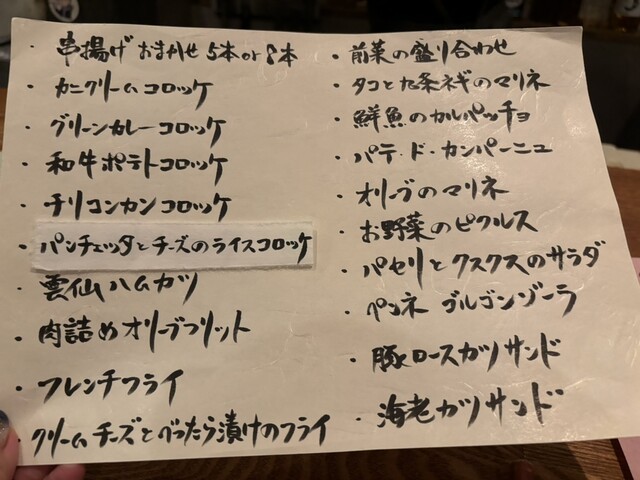 ・串揚げ おまかせ 5本 or 8本
・カニクリームコロッケ
・グリーンカレーコロッケ
・和牛ポテトコロッケ
・チリコンカンコロッケ
・パンチェッタとチーズのライスコロッケ
・雲仙ハムカツ
・肉詰めオリーブフリット
・フレンチフライ
・クリームチーズとべったら漬けのフライ
・前菜の盛り合わせ
・タコと九条ネギのマリネ
・鮮魚のカルパッチョ
・パテ・ド・カンパーニュ
・オリーブのマリネ
・お野菜のピクルス
・パセリとクスクスのサラダ
・ペンネ ゴルゴンゾーラ
・豚ロースカツサンド
・海老カツサンド